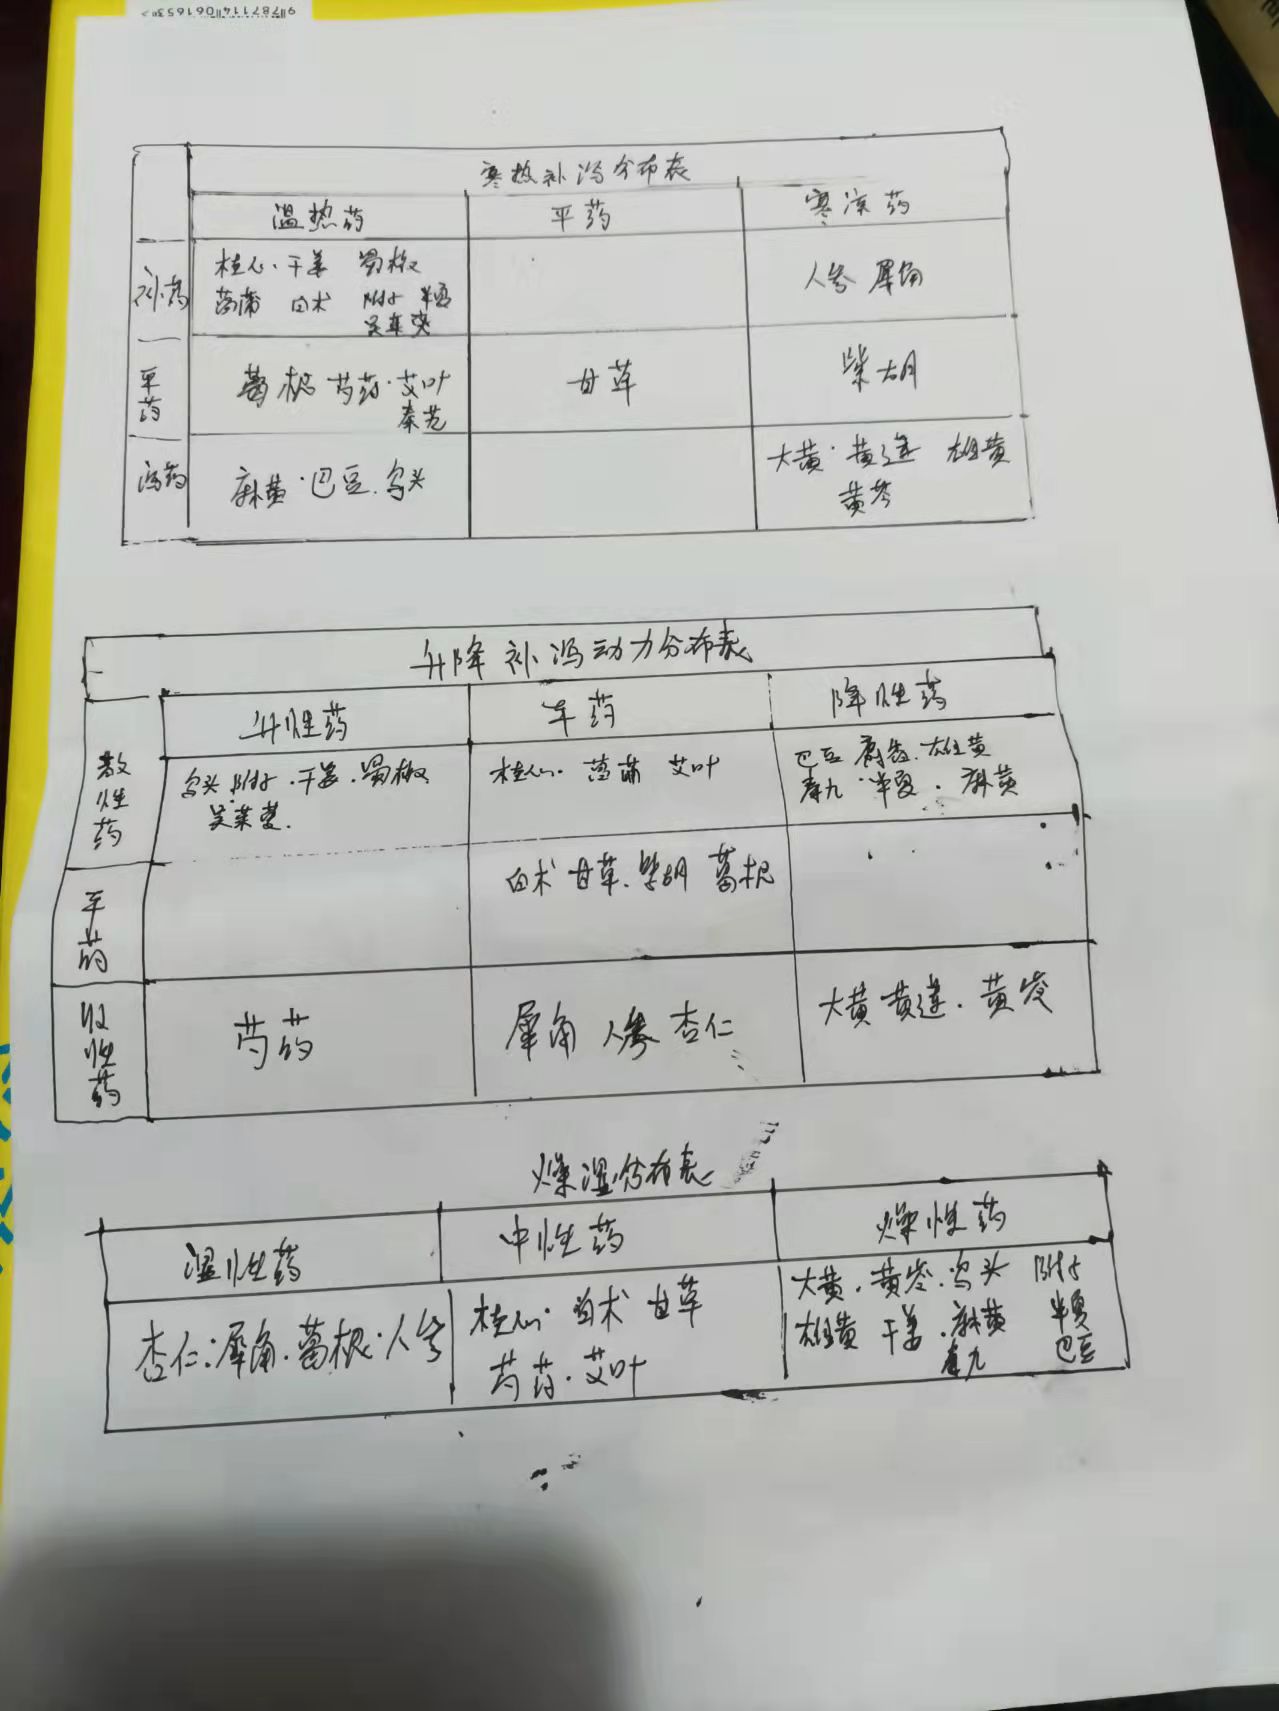 9 787114 061653 >
寒热补泻分布表
温热药 平药 寒凉药
补药 桂心·干姜 蜀椒 人参 犀角
菖蒲 白术 附子 半夏
吴茱萸
平药 葛根 芍药·艾叶 甘草 柴胡
秦艽
泻药 麻黄·巴豆·乌头 大黄·黄连 雄黄
黄芩
升降补泻动力分布表
升性药 平药 降性药
散性药 乌头 附子·干姜·蜀椒 桂心·菖蒲 艾叶 巴豆 雄黄
吴茱萸· 秦九·半夏·麻黄
平药 白术 甘草·柴胡 葛根
收性药 芍药 犀角 人参 杏仁 大黄 黄连·黄芩
燥湿分布表
湿性药 中性药 燥性药
杏仁·犀角·葛根·人参 桂心·白术 甘草 大黄·黄芩·乌头 附子
芍药·艾叶 雄黄 干姜·麻黄 半夏
秦九 巴豆